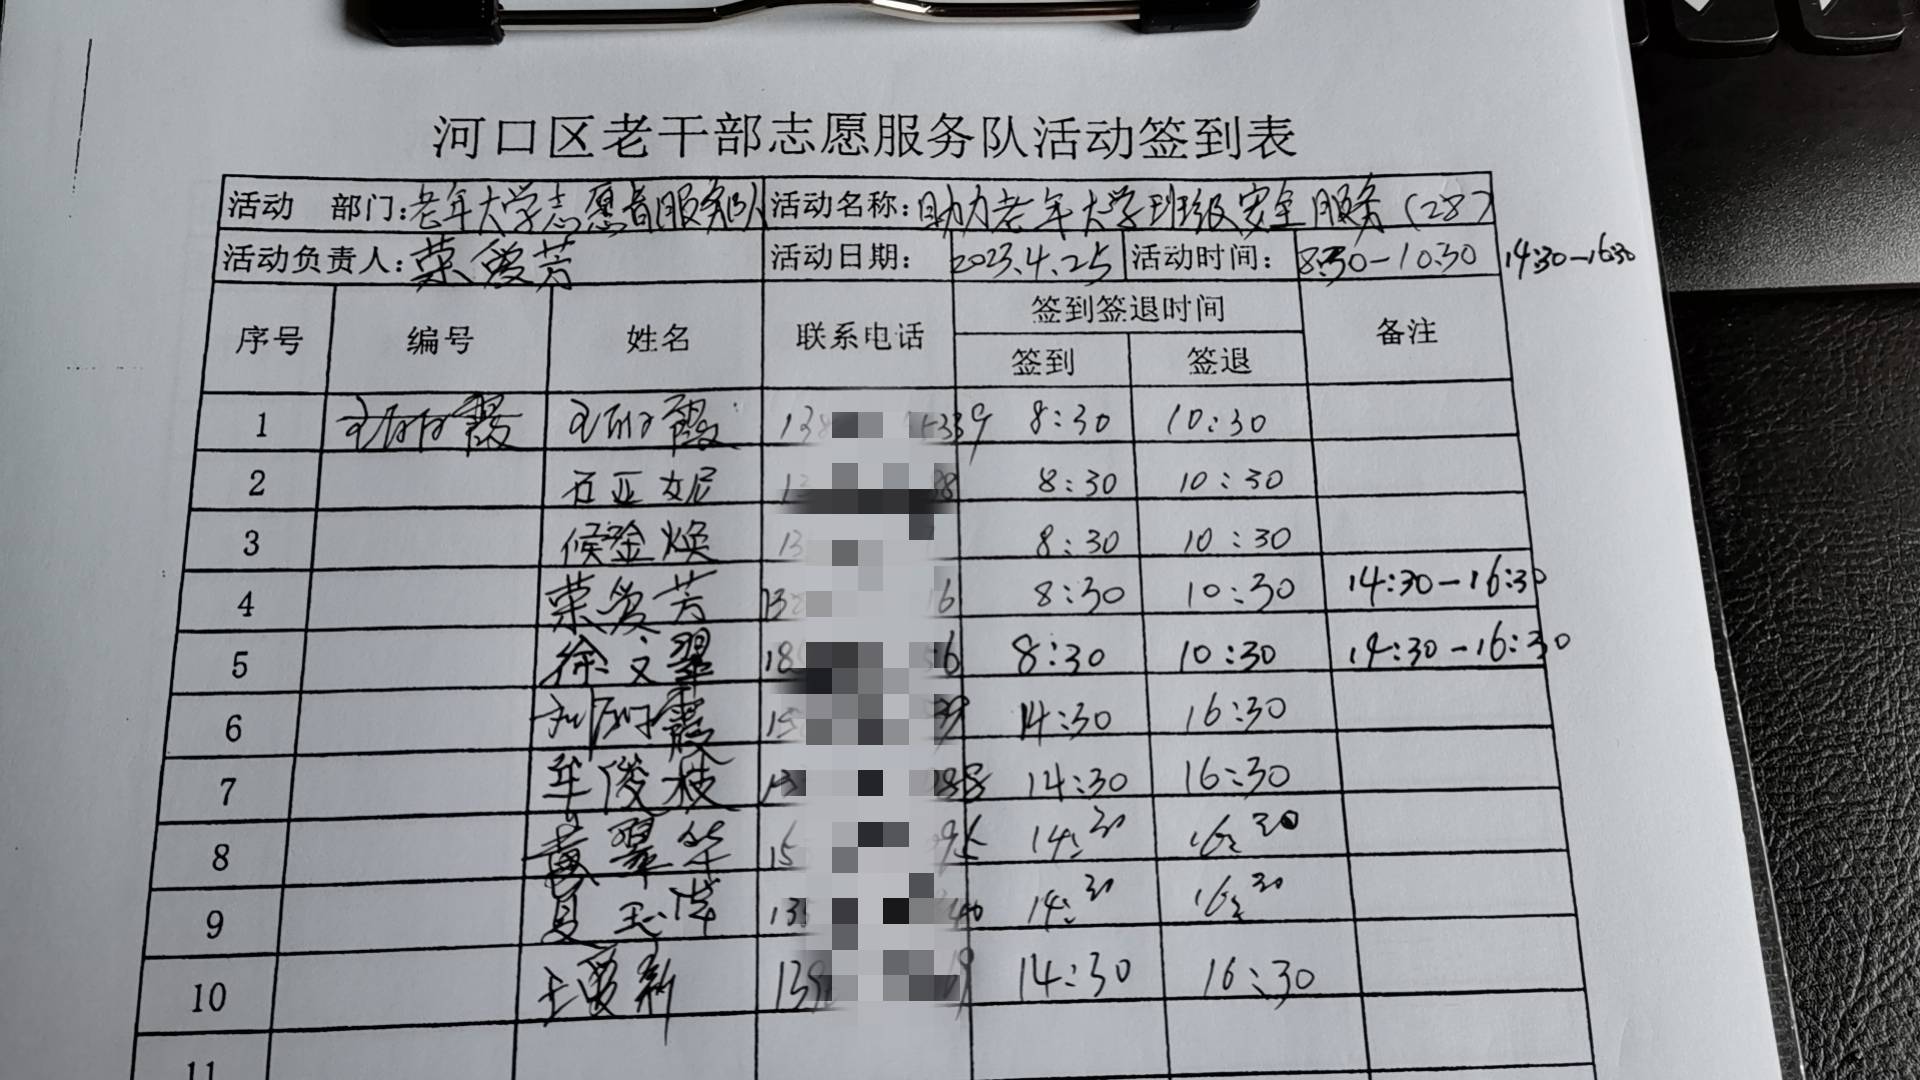 河口区老干部志愿服务队活动签到表
活动 部门:老年大学志愿者服务队 活动名称:助力老年大学班级安全服务(28)
活动负责人:荣爱芳 活动日期: 2023.4.25 活动时间: 8:30-10:30 14:30-16:30
序号 编号 姓名 联系电话 签到签退时间 备注
签到 签退
1 8:30 10:30
2 石亚妮 8:30 10:30
3 候金焕 8:30 10:30
4 荣爱芳 8:30 10:30 14:30-16:30
5 徐文翠 8:30 10:30 14:30-16:30
6 14:30 16:30
7 牟俊枝 14:30 16:30
8 黄翠华 14:30 16:30
9 14:30 16:30
10 王爱新 14:30 16:30
11